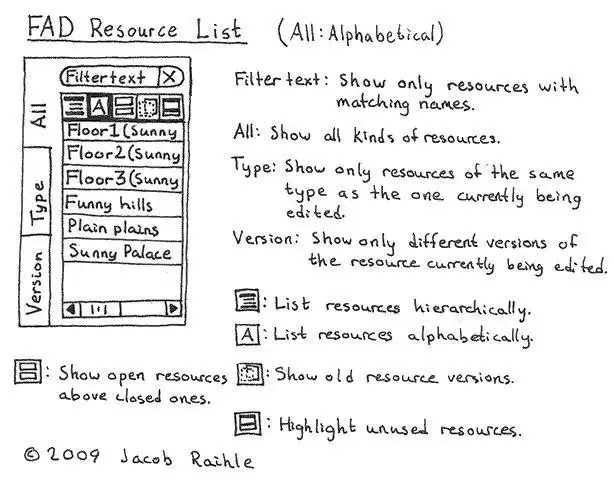 FAD Resource List (All: Alphabetical)
All
Type
Version
Filtertext X
A
Floor1(Sunny
Floor2(Sunny
Floor3(Sunny
Funny hills
Plain plains
Sunny Palace
Filtertext: Show only resources with
matching names.
All: Show all kinds of resources.
Type: Show only resources of the same
type as the one currently being
edited.
Version: Show only different versions of
the resource currently being edited.
: List resources hierarchically.
A: List resources alphabetically.
: Show open resources
above closed ones.
: Show old resource versions.
: Highlight unused resources.
© 2009 Jacob Raihle